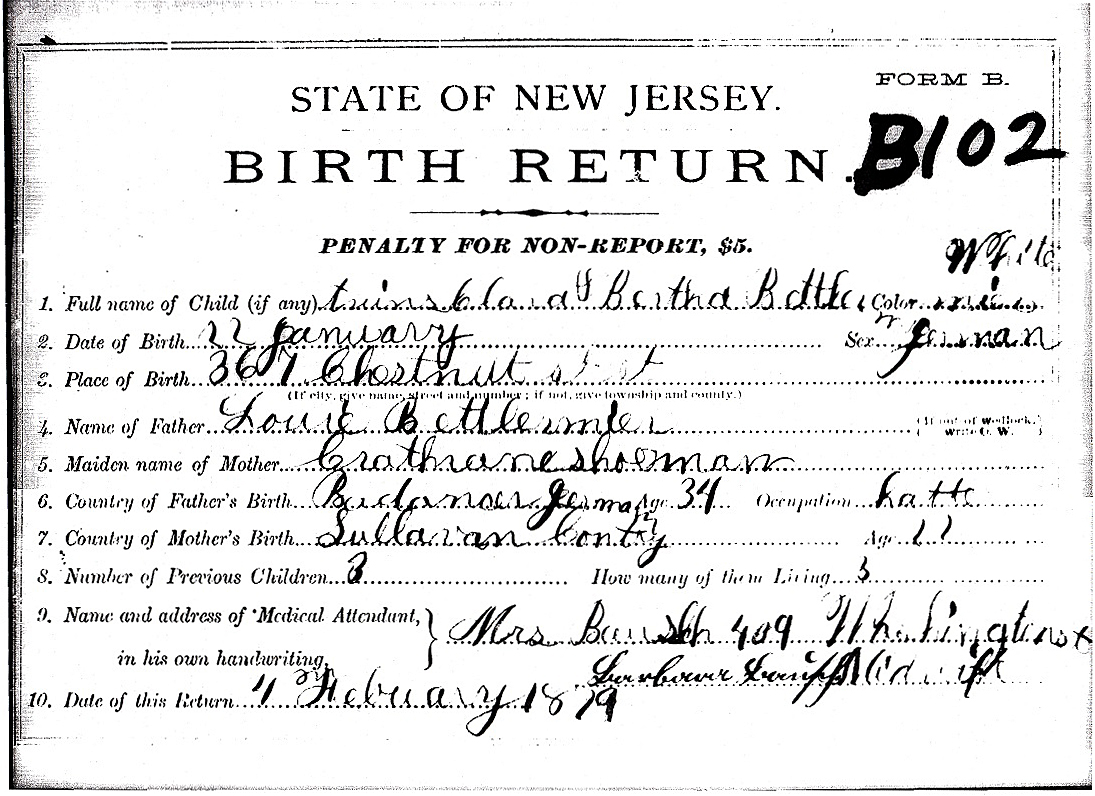 FORM B.
STATE OF NEW JERSEY.
B102
BIRTH RETURN.
PENALTY FOR NON-REPORT, $5.
White
1. Full name of Child (if any) twins Clara & Bertha Bettle Color
2. Date of Birth 22 January Sex german
3. Place of Birth 367 Chestnut
(If city, give name, street and number; if not, give township and county.)
4. Name of Father Louie Bettlemier (If out of wedlock, write O. W.)
5. Maiden name of Mother
6. Country of Father's Birth Age 34 Occupation hatte
7. Country of Mother's Birth Sullavan Conty Age
8. Number of Previous Children 3 How many of them Living 3
9. Name and address of Medical Attendant, Mrs Bausch 409
in his own handwriting, Barbara Midwift
10. Date of this Return 4 Febuary 1879